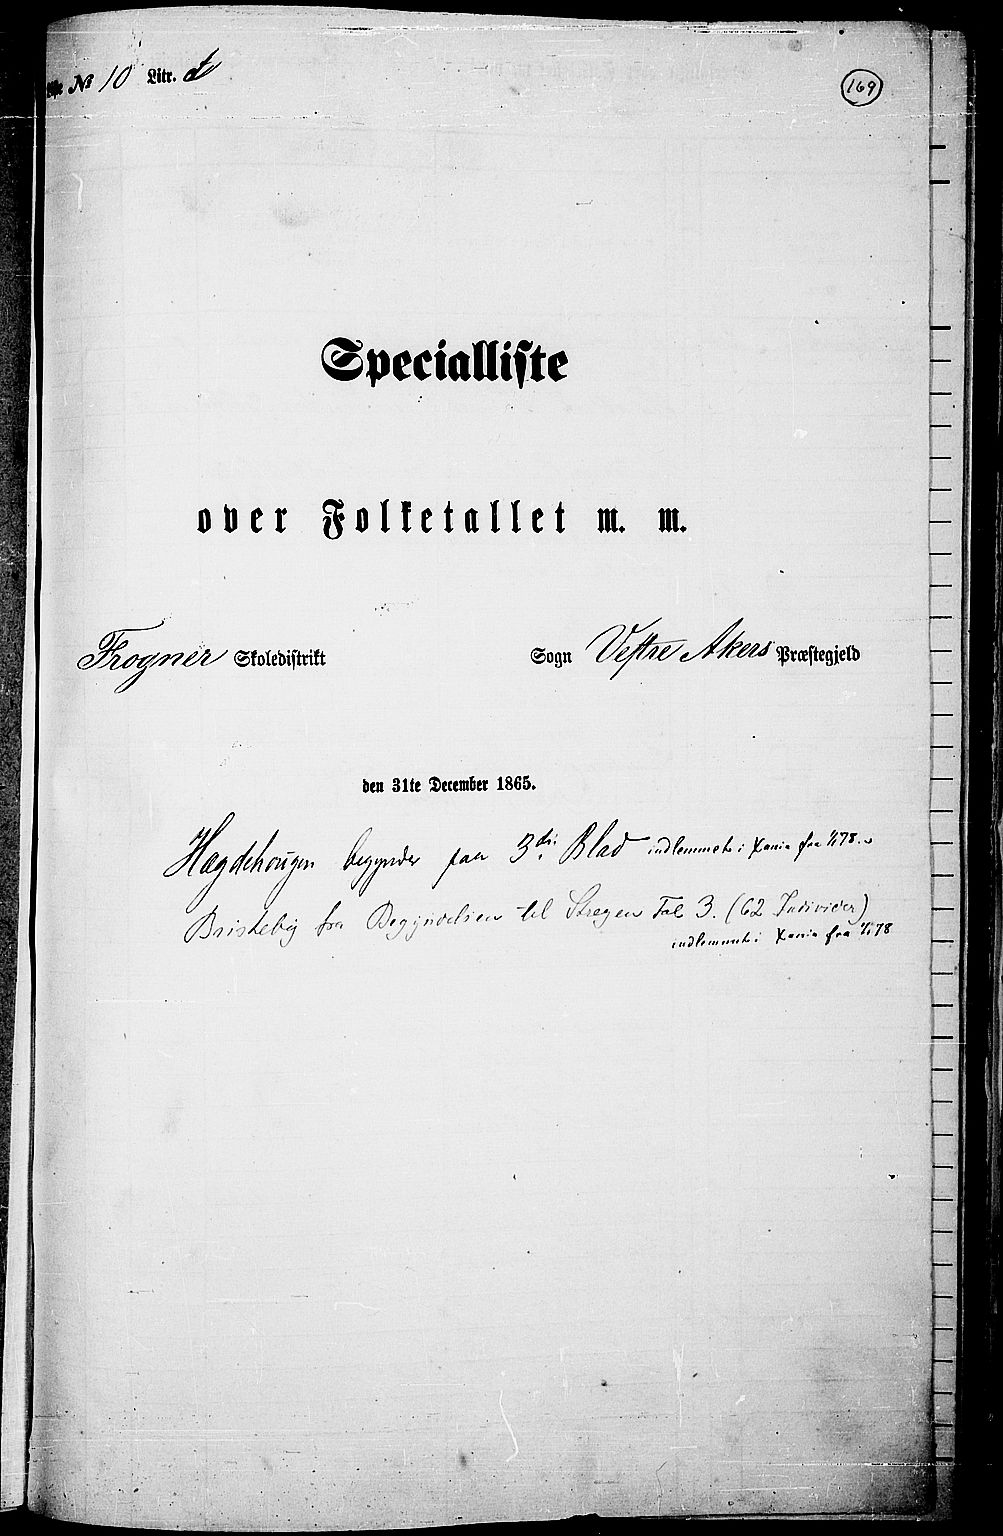 Liste № 10 Litr. d
169
Specialliste
over Folketallet m. m.
Frogner Skoledistrikt Sogn Vestre Akers Præstegjeld
den 31te December 1865.
Hægdehougen begynder paa 3die Blad indlemmet i Xania fra 1/1 78.
Briskeby fra Begyndelsen til Stregen Fol 3. (62 Individer)
indlemmet i Xania fra 1/1 78